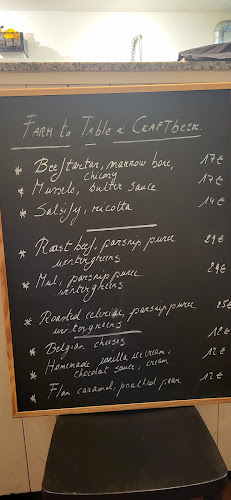 Farm to Table & Craftbeer.
* Beef tartar, marrow bone, 17€
chicory
* Mussels, butter sauce 17€
* Salsify, ricotta 14€
* Roast beef, parsnip puree 29€
wintergreens
* Hut, parsnip puree 29€
wintergreens
* Roasted celeriac, parsnip puree 25€
wintergreens
* Belgian cheeses 12€
* Homemade vanilla icecream, 12€
chocolat sauce, cream
* Flan caramel, poached pear 12€